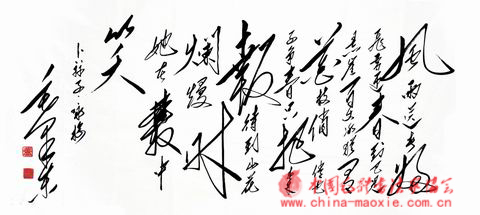 風雨送春归
飛雪迎春到已是
悬崖百丈冰犹有
花枝俏俏也
不争春只把春来
報待到山花
烂漫时
她在叢中
笑
卜算子 咏梅
毛泽东
www.china-maoxie.com.cn